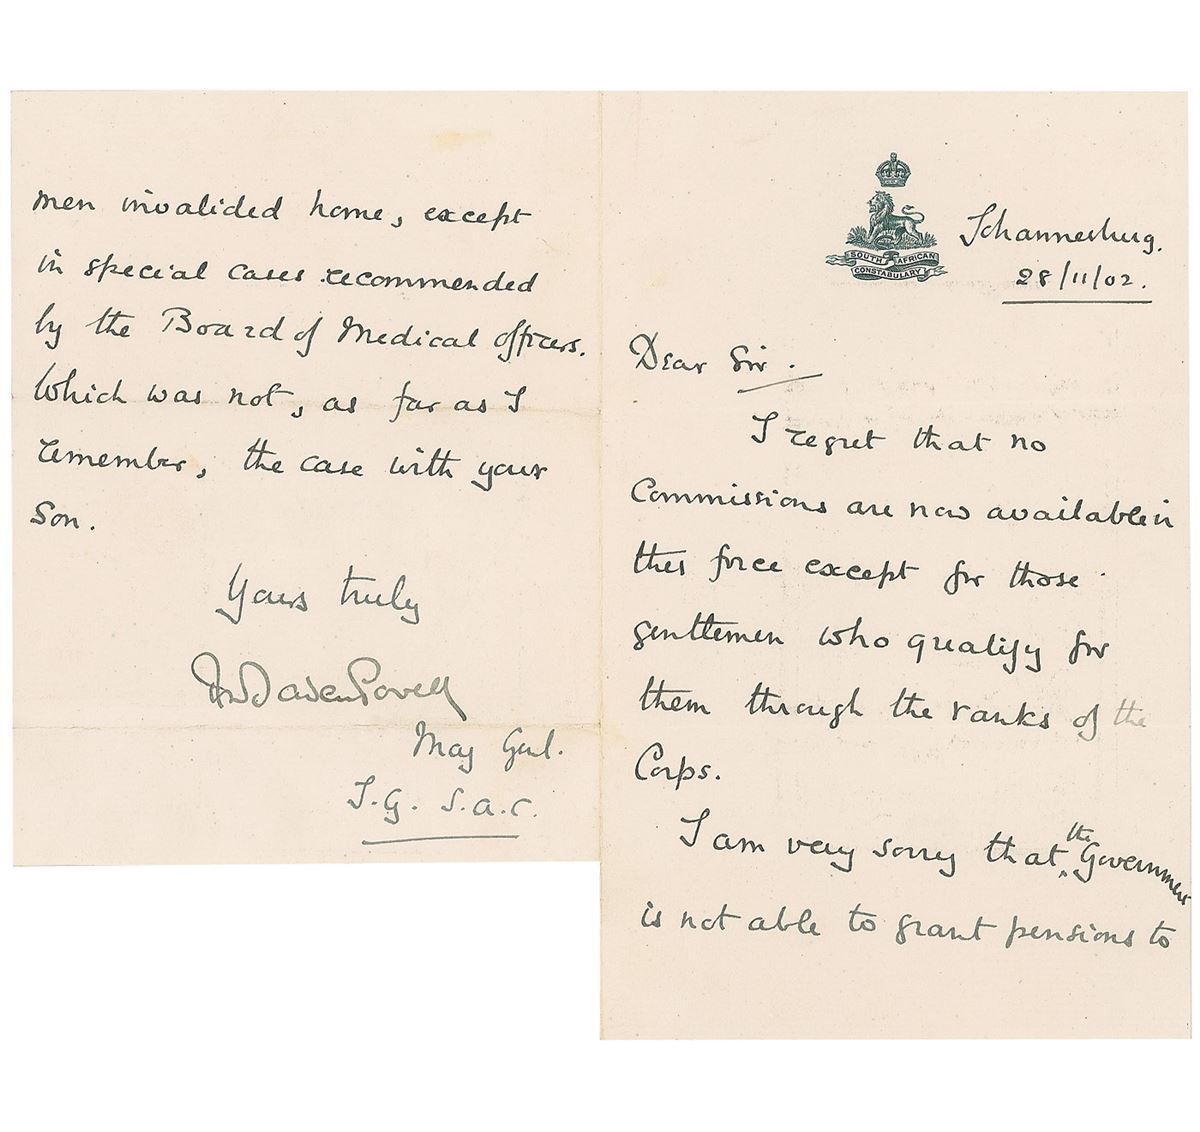 SOUTH AFRICAN
CONSTABULARY
Johannesburg.
28/11/02.
Dear Sir.
I regret that no
Commissions are now available in
this force except for those
gentlemen who qualify for
them through the ranks of the
Corps.
I am very sorry that the Government
is not able to grant pensions to
men invalided home, except
in special cases recommended
by the Board of Medical officers.
Which was not, as far as I
remember, the case with your
Son.
Yours truly
RSS Baden Powell
Maj Genl.
I.G. S.A.C.